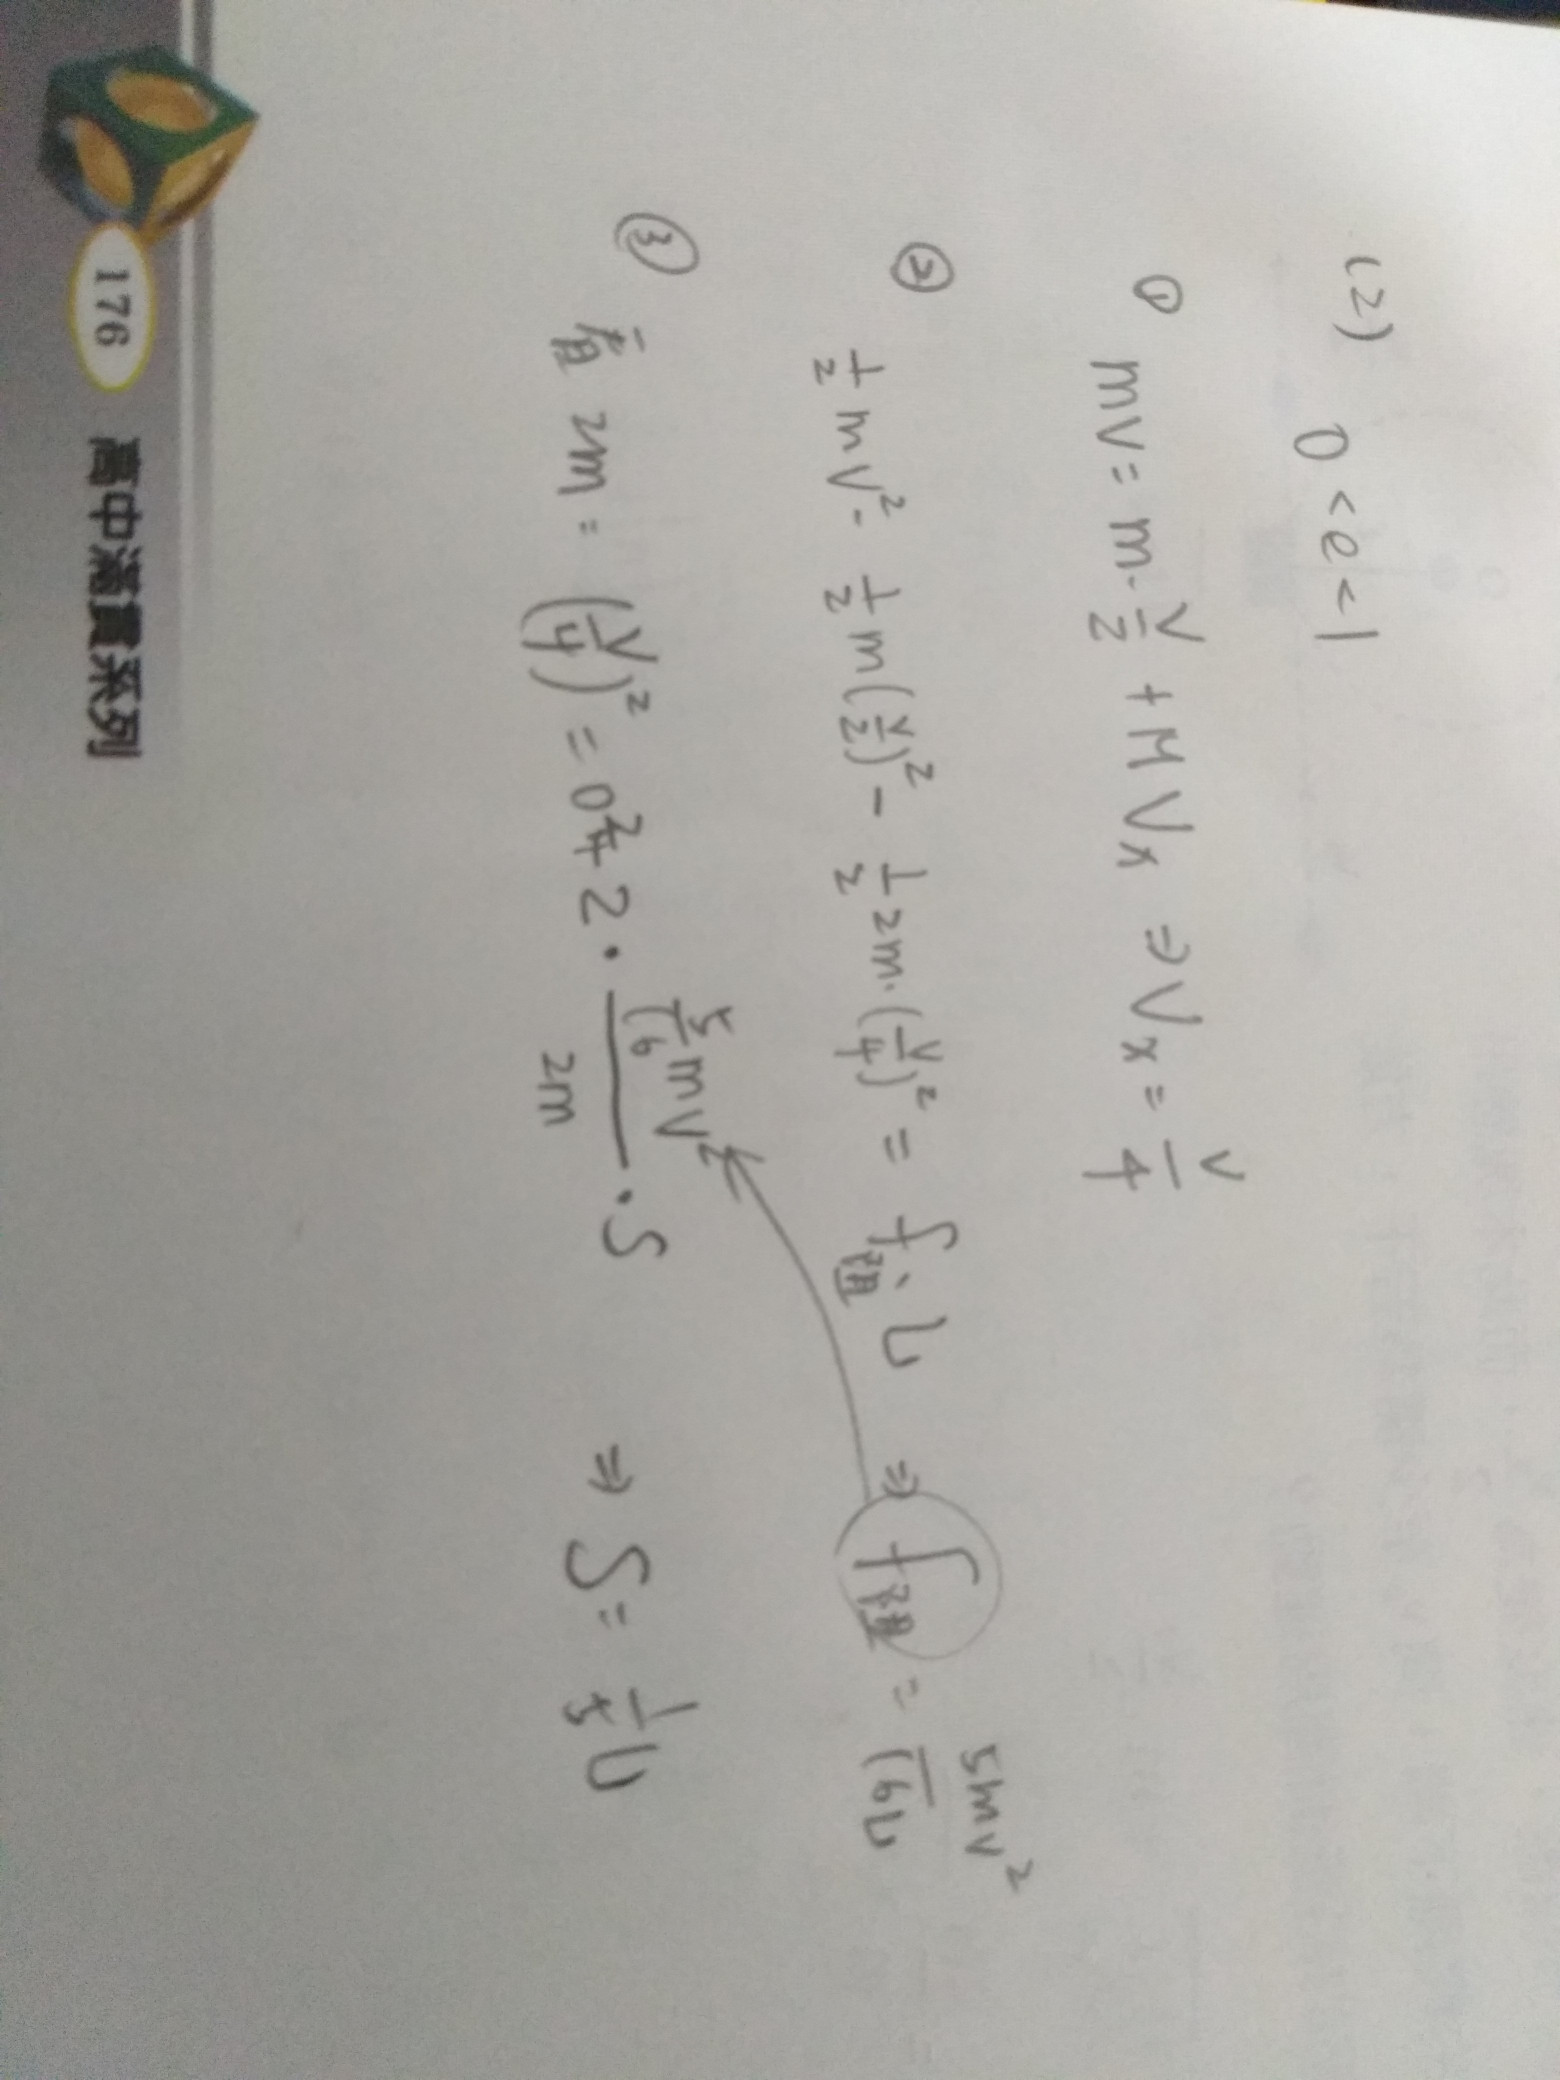 (2) 0<e<1
① mv = m·v/2 + MVx ⇒ Vx = v/4
② 1/2 mv² - 1/2 m(v/2)² - 1/2 2m·(v/4)² = f阻·L ⇒ f阻 = 5mv²/16L
③ 看 2m : (v/4)² = 0²+2·(5/16 mv²/2m)·S ⇒ S = 1/5 L
176 高中滿貫系列